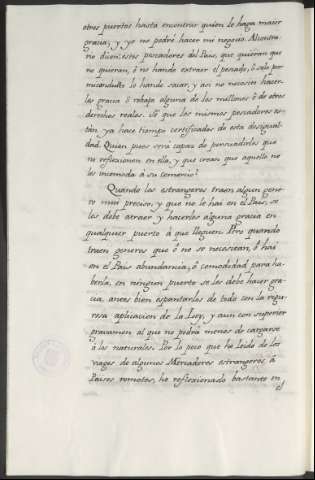 otros puertos hasta encontrar quien le haga maior
gracia; y yo no podré hacer mi negocio. Al contra-
rio dicen: estos pescadores del Pais, que quieran que
no quieran, ó no hande extraer el pescado, ó solo por
mi conducto lo hande sacar, y asi no necesito hacer-
les gracia ó rebaja alguna de los millones ó de otros
derechos reales. Sé que los mismos pescadores es-
tán ya hace tiempo certificados de esta desigual-
dad. Quien pues será capaz de persuadirles que
ni reflexionen en ella, y que crean que aquello no
les incomoda á su comercio?
Quando los estrangeros traen algun gene-
ro mui preciso, y que no le hai en el Pais, se
les debe atraer y hacerles alguna gracia en
qualquier puerto á que lleguen. Pero quando
traen generos que ó no se necesitan, ó hai
en el Pais abundancia, ó comodidad para ha-
berla, en ningun puerto se les debe hacer gra-
cia, antes bien espantarlos de todo con la rigu-
rosa aplicacion de la Ley, y aun con superior
gravamen al que no podrá menos de cargarse
á los naturales. Por lo poco que he leido de los
viages de algunos Mercaderes estrangeros, á
Paises remotos, he reflexionado bastante en
el